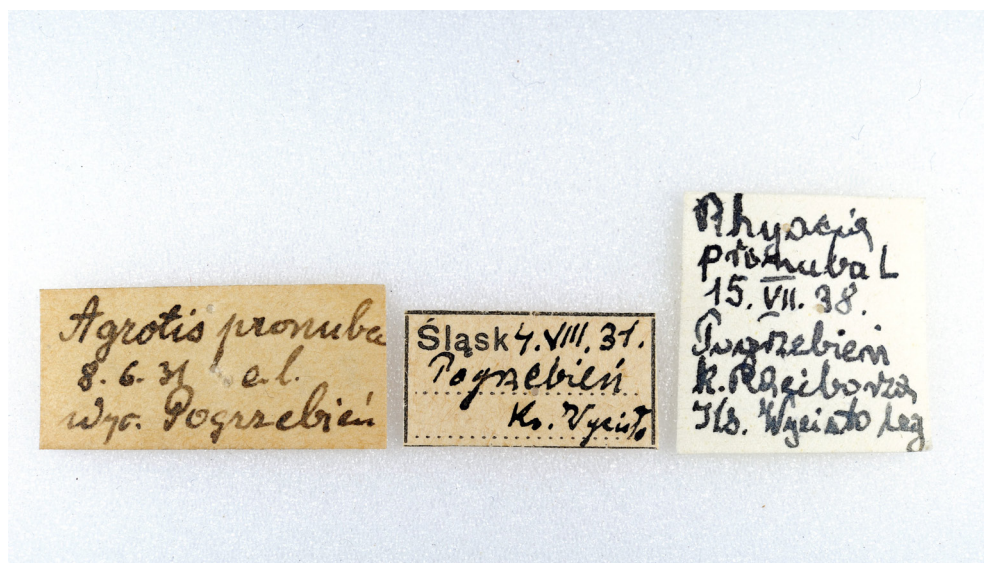 Agrotis pronuba
8. 6. 31 e.l.
Wyc. Pogrzebień
Śląsk 4. VIII. 31.
Pogrzebień
Ks. Wycisło
Rhyacia
pronuba L
15. VII. 38.
Pogrzebień
k. Raciborza
Ks. Wycisło leg